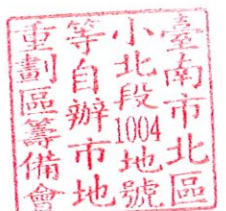 臺南市北區
小北段1004地號
等自辦市地
重劃區籌備會